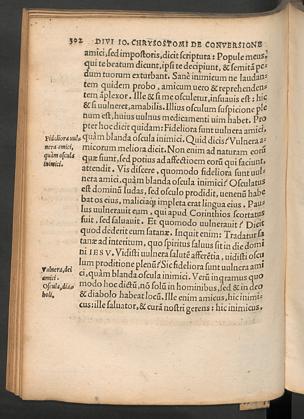 302 DIVI IO. CHRYSOSTOMI DE CONVERSIONE
amici, sed impostoris, dicit scriptura: Popule meus,
qui te beatum dicunt, ipsi te decipiunt, & semitā pe
dum tuorum exturbant. Sanè inimicum ne laudan
tem quidem probo, amicum uero & reprehenden
tem āplexor. Ille & si me osculetur, insuauis est: hic
& si vulneret, amabilis. Illius osculum suspicione ple
num est, huius vulnus medicamenti uim habet. Pro
pter hoc dicit quidam: Fideliora sunt vulnera amici,
quàm blanda oscula inimici. Quid dicis? Vulnera a-
micorum meliora dicit. Non enim ad naturam eorū
quæ fiunt, sed potius ad affectionem eorū qui faciunt,
attendit. Vis discere, quomodo fideliora sunt vul-
nera amici, quàm blanda oscula inimici? Osculatus
est dominū Iudas, sed osculo prodidit, venenū habe
bat os eius, malicia impleta erat lingua eius. Pau
lus vulnerauit eum, qui apud Corinthios scortatus
fuit, sed saluauit. Et quomodo vulnerauit? Dicit
quod dederit eum satanæ. Inquit enim: Tradatur sa
tanæ ad interitum, quo spiritus saluus sit in die domi
ni IESV. Vidisti vulnera salutē afferētia, uidisti oscu
lum proditione plenū? Sic fideliora sunt vulnera ami
ci, quàm blanda oscula inimici. Verū in quamus quo
modo hoc dictū, nō solū in hominibus, sed & in deo
& diabolo habeat locū. Ille enim amicus, hic inimi-
cus: ille saluator, & curā nostri gerens: hic inimicus,
Fideliora vul-
nera amici,
quàm oscula
inimici.
Vulnera, dei
amici.
Oscula, dia-
boli,